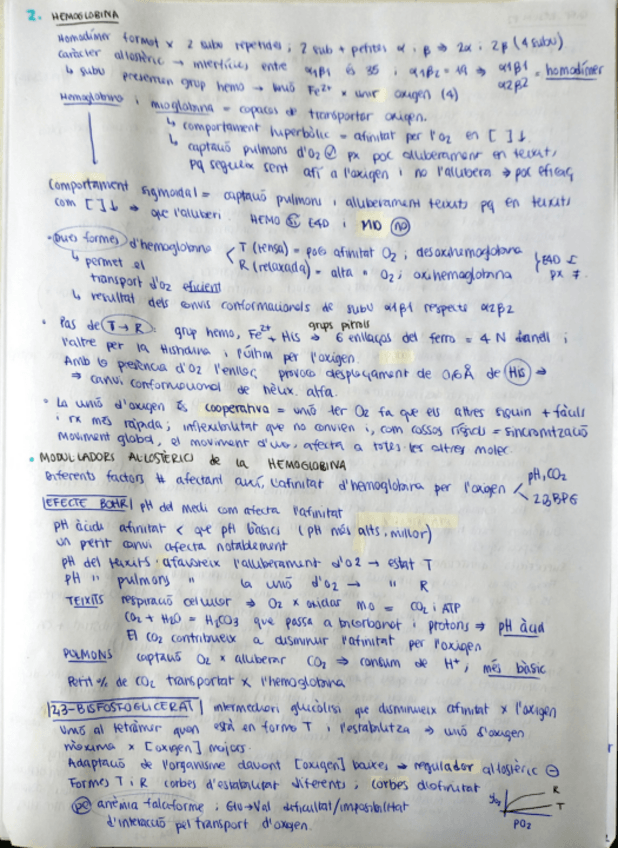 2. HEMOGLOBINA
Homodímer format x 2 subu repetides; 2 sub + petites α i β ⇒ 2α i 2β (4 subu)
caràcter al·lostèric → interfícies entre α1β1 és 35 i α1β2 = 19 ⇒ α1β1 = homodímer
α2β2
↳ subu presenten grup hemo → unió Fe²⁺ x unir oxigen (4)
Hemoglobina i mioglobina = capaces de transportar oxigen.
↳ comportament hiperbòlic = afinitat per l'O2 en [ ]↓
↳ captació pulmons d'O2 px poc alliberament en teixits
pq segueix sent afí a l'oxigen i no l'allibera ⇒ poc eficaç
Comportament sigmoidal = captació pulmons i alliberament teixits pq en teixits
com [ ]↓ ⇒ que l'alliberi. HEMO SÍ E4D i MIO no
• Dues formes d'hemoglobina < T (tensa) = poca afinitat O2; desoxihemoglobina
R (relaxada) = alta " O2; oxihemoglobina } E4D =
px ≠
↳ permet el
transport d'O2 eficient
↳ resultat dels canvis conformacionals de subu α1β1 respecte α2β2
• Pas de T → R: grup hemo, Fe²⁺ + His → 6 enllaços del ferro = 4 N d'anell i
grups pirrols
l'altre per la Histidina i l'últim per l'oxigen.
Amb la presència d'O2 l'enllaç provoca desplaçament de 0,6Å de His →
⇒ canvi conformacional de hèlix alfa.
• La unió d'oxigen és cooperativa = unió 1er O2 fa que els altres siguin + fàcils
i rx més ràpida; inflexibilitat que no canvien i, com cossos rígids = sincronització
Moviment global, el moviment d'un, afecta a totes les altres molec.
• MODULADORS AL·LOSTÈRICS de la HEMOGLOBINA
Diferents factors afectant així, l'afinitat d'hemoglobina per l'oxigen < pH, CO2
2,3BPG
EFECTE BOHR | pH del medi com afecta l'afinitat
pH àcids afinitat < que pH bàsics (pH més alts, millor)
un petit canvi afecta notablement
pH del teixits afavoreix l'alliberament d'O2 → estat T
pH " pulmons " la unió d'O2 → " R
TEIXITS respiració cel·lular ⇒ O2 x oxidar MO = CO2 i ATP
CO2 + H2O = H2CO3 que passa a bicarbonat i protons ⇒ pH àcid
El CO2 contribueix a disminuir l'afinitat per l'oxigen
PULMONS captació O2 x alliberar CO2 ⇒ consum de H⁺, més bàsic
Petit % de CO2 transportat x l'hemoglobina
2,3-BISFOSFOGLICERAT | intermediari glicòlisi que disminueix afinitat x l'oxigen
Unió al tetràmer quan està en forma T i l'estabilitza → unió d'oxigen
màxima x [oxigen] majors.
Adaptació de l'organisme davant [oxigen] baixes → regulador al·lostèric ⊖
Formes T i R corbes d'estabilitat diferents; corbes d'afinitat
anèmia falciforme; Glu→Val dificultat/impossibilitat
d'interacció pel transport d'oxigen.
R
T
PO2